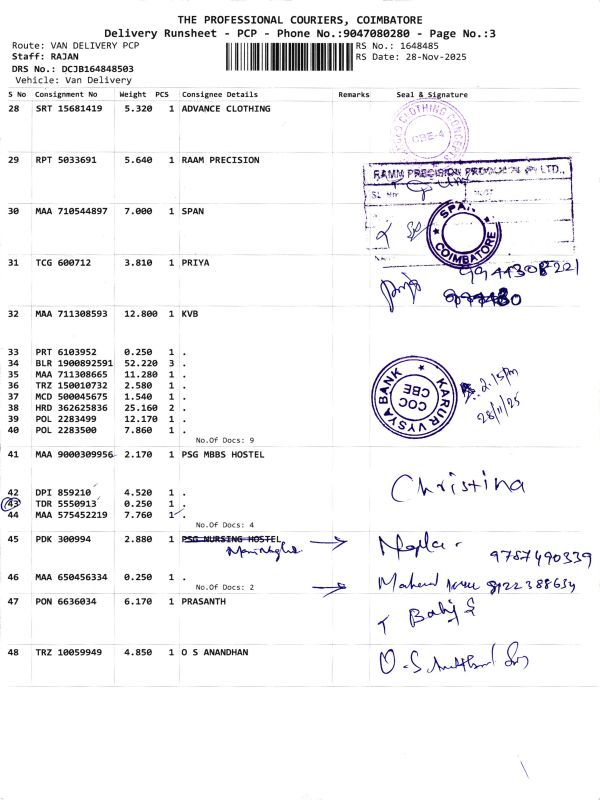 THE PROFESSIONAL COURIERS, COIMBATORE
Delivery Runsheet - PCP - Phone No.:9047080280 - Page No.:3
Route: VAN DELIVERY PCP RS No.: 1648485
Staff: RAJAN RS Date: 28-Nov-2025
DRS No.: DCJB164848503
Vehicle: Van Delivery
S No Consignment No Weight PCS Consignee Details Remarks Seal & Signature
28 SRT 15681419 5.320 1 ADVANCE CLOTHING
CLOTHING
CBE-4
29 RPT 5033691 5.640 1 RAAM PRECISION
RAMM PRECISION PRODUCTS (P) LTD.,
30 MAA 710544897 7.000 1 SPAN
SPAN
COIMBATORE
31 TCG 600712 3.810 1 PRIYA
9944308221
32 MAA 711308593 12.800 1 KVB
33 PRT 6103952 0.250 1 .
34 BLR 1900892591 52.220 3 .
35 MAA 711308665 11.280 1 .
36 TRZ 150010732 2.580 1 .
37 MCD 500045675 1.540 1 .
38 HRD 362625836 25.160 2 .
39 POL 2283499 12.170 1 .
40 POL 2283500 7.860 1 .
KARUR VYSYA BANK
COC
CBE
2.15pm
28/11/25
No.Of Docs: 9
41 MAA 9000309956 2.170 1 PSG MBBS HOSTEL
Christina
42 DPI 859210 4.520 1 .
43 TDR 5550913 0.250 1 .
44 MAA 575452219 7.760 1 .
No.Of Docs: 4
45 PDK 300994 2.880 1 PSG NURSING HOSTEL
9787490339
46 MAA 650456334 0.250 1 .
No.Of Docs: 2
8122388634
47 PON 6636034 6.170 1 PRASANTH
48 TRZ 10059949 4.850 1 O S ANANDHAN